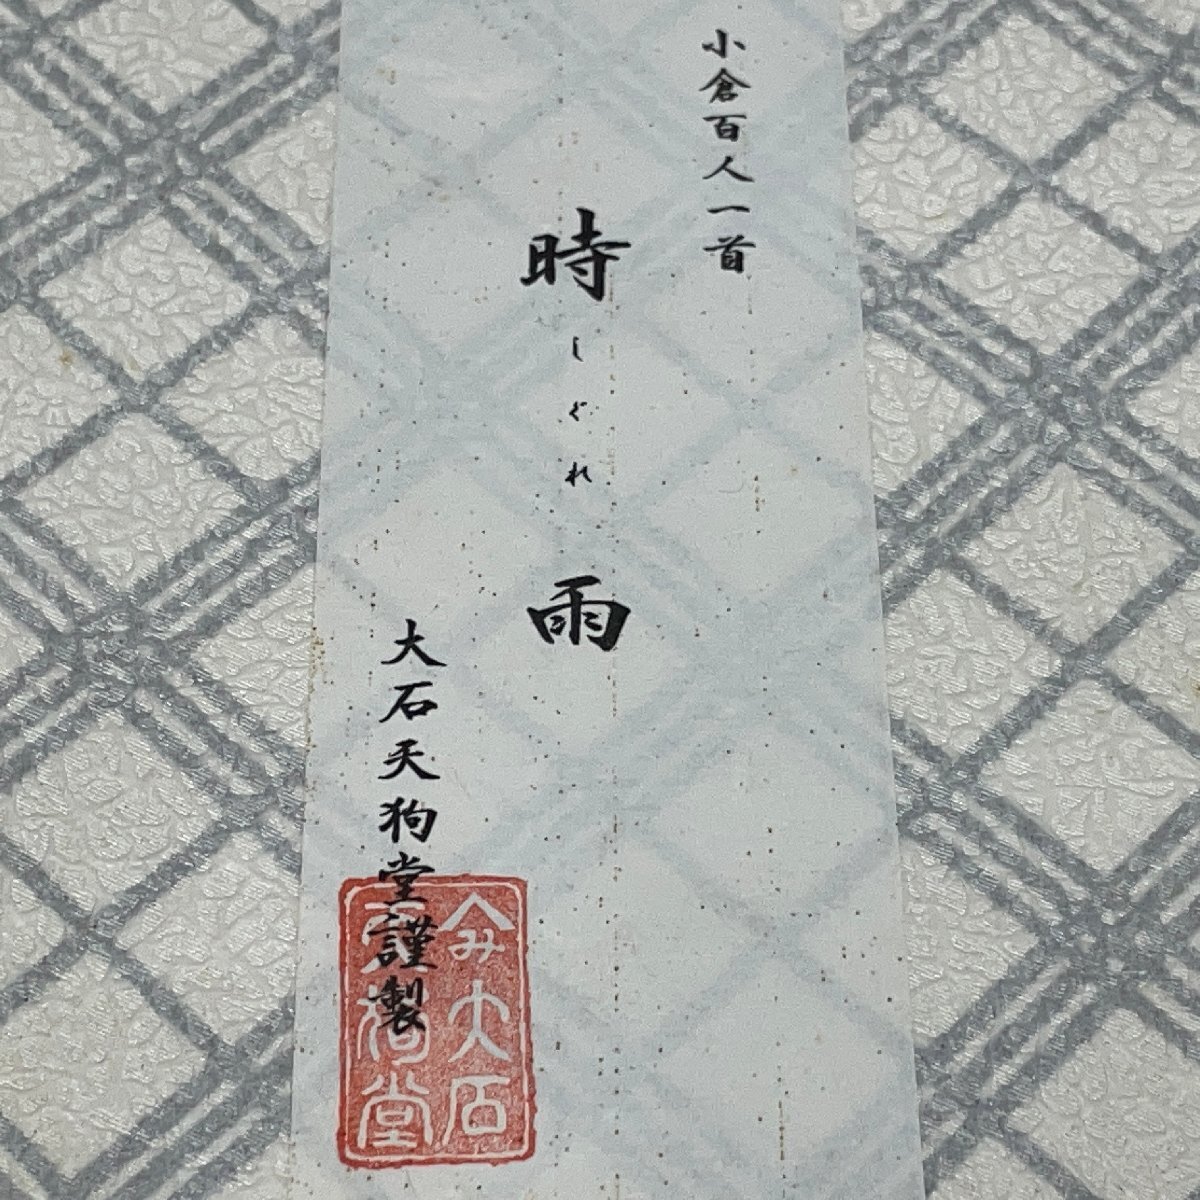 小倉百人一首
時しぐれ雨
大石天狗堂謹製
大石
天狗堂